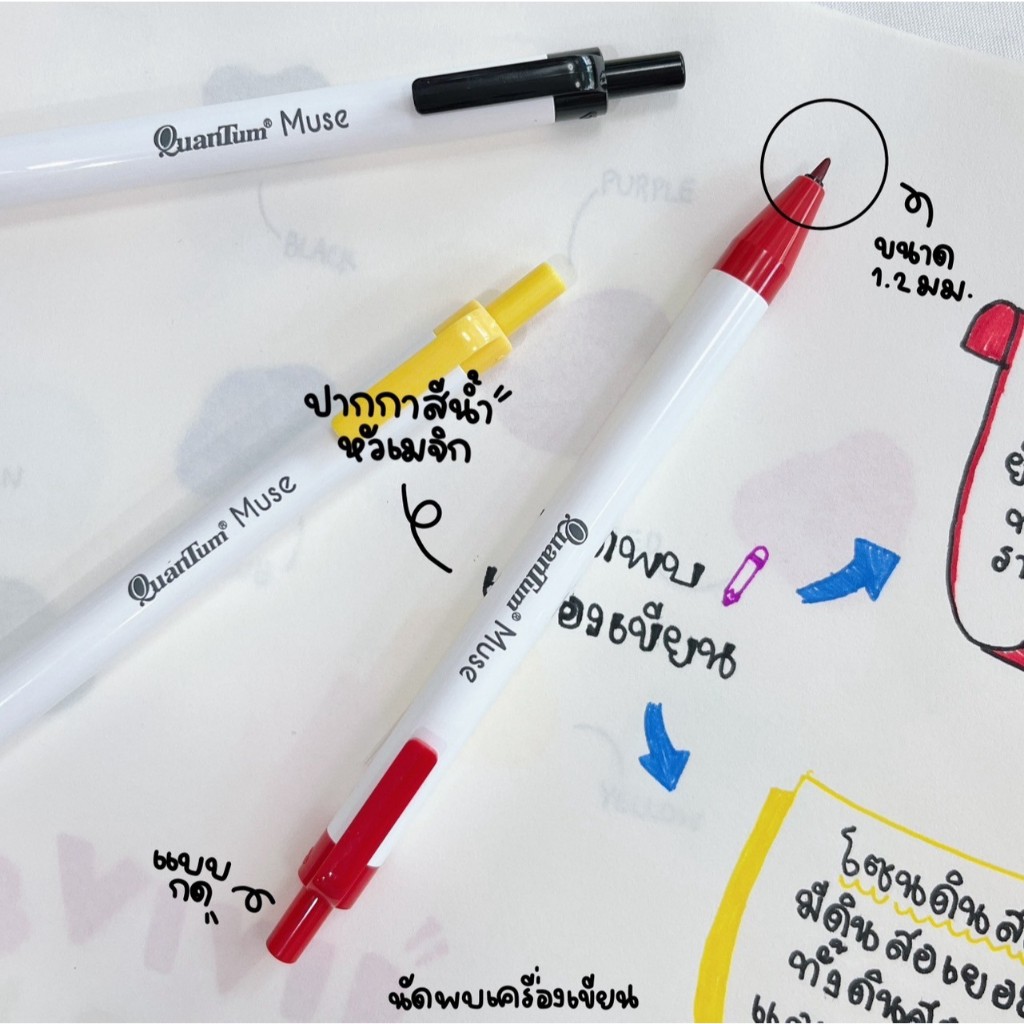 QuanTum® Muse
PURPLE
BLACK
ขนาด
1.2 มม.
ปากกาสีน้ำ
หัวเมจิก
QuanTum® Muse
QuanTum® Muse
พบ
องเขียน
YELLOW
แบบ
กด
โซนดินส
มีดินสอเยอ
ทั้งดินส
นัดพบเครื่องเขียน